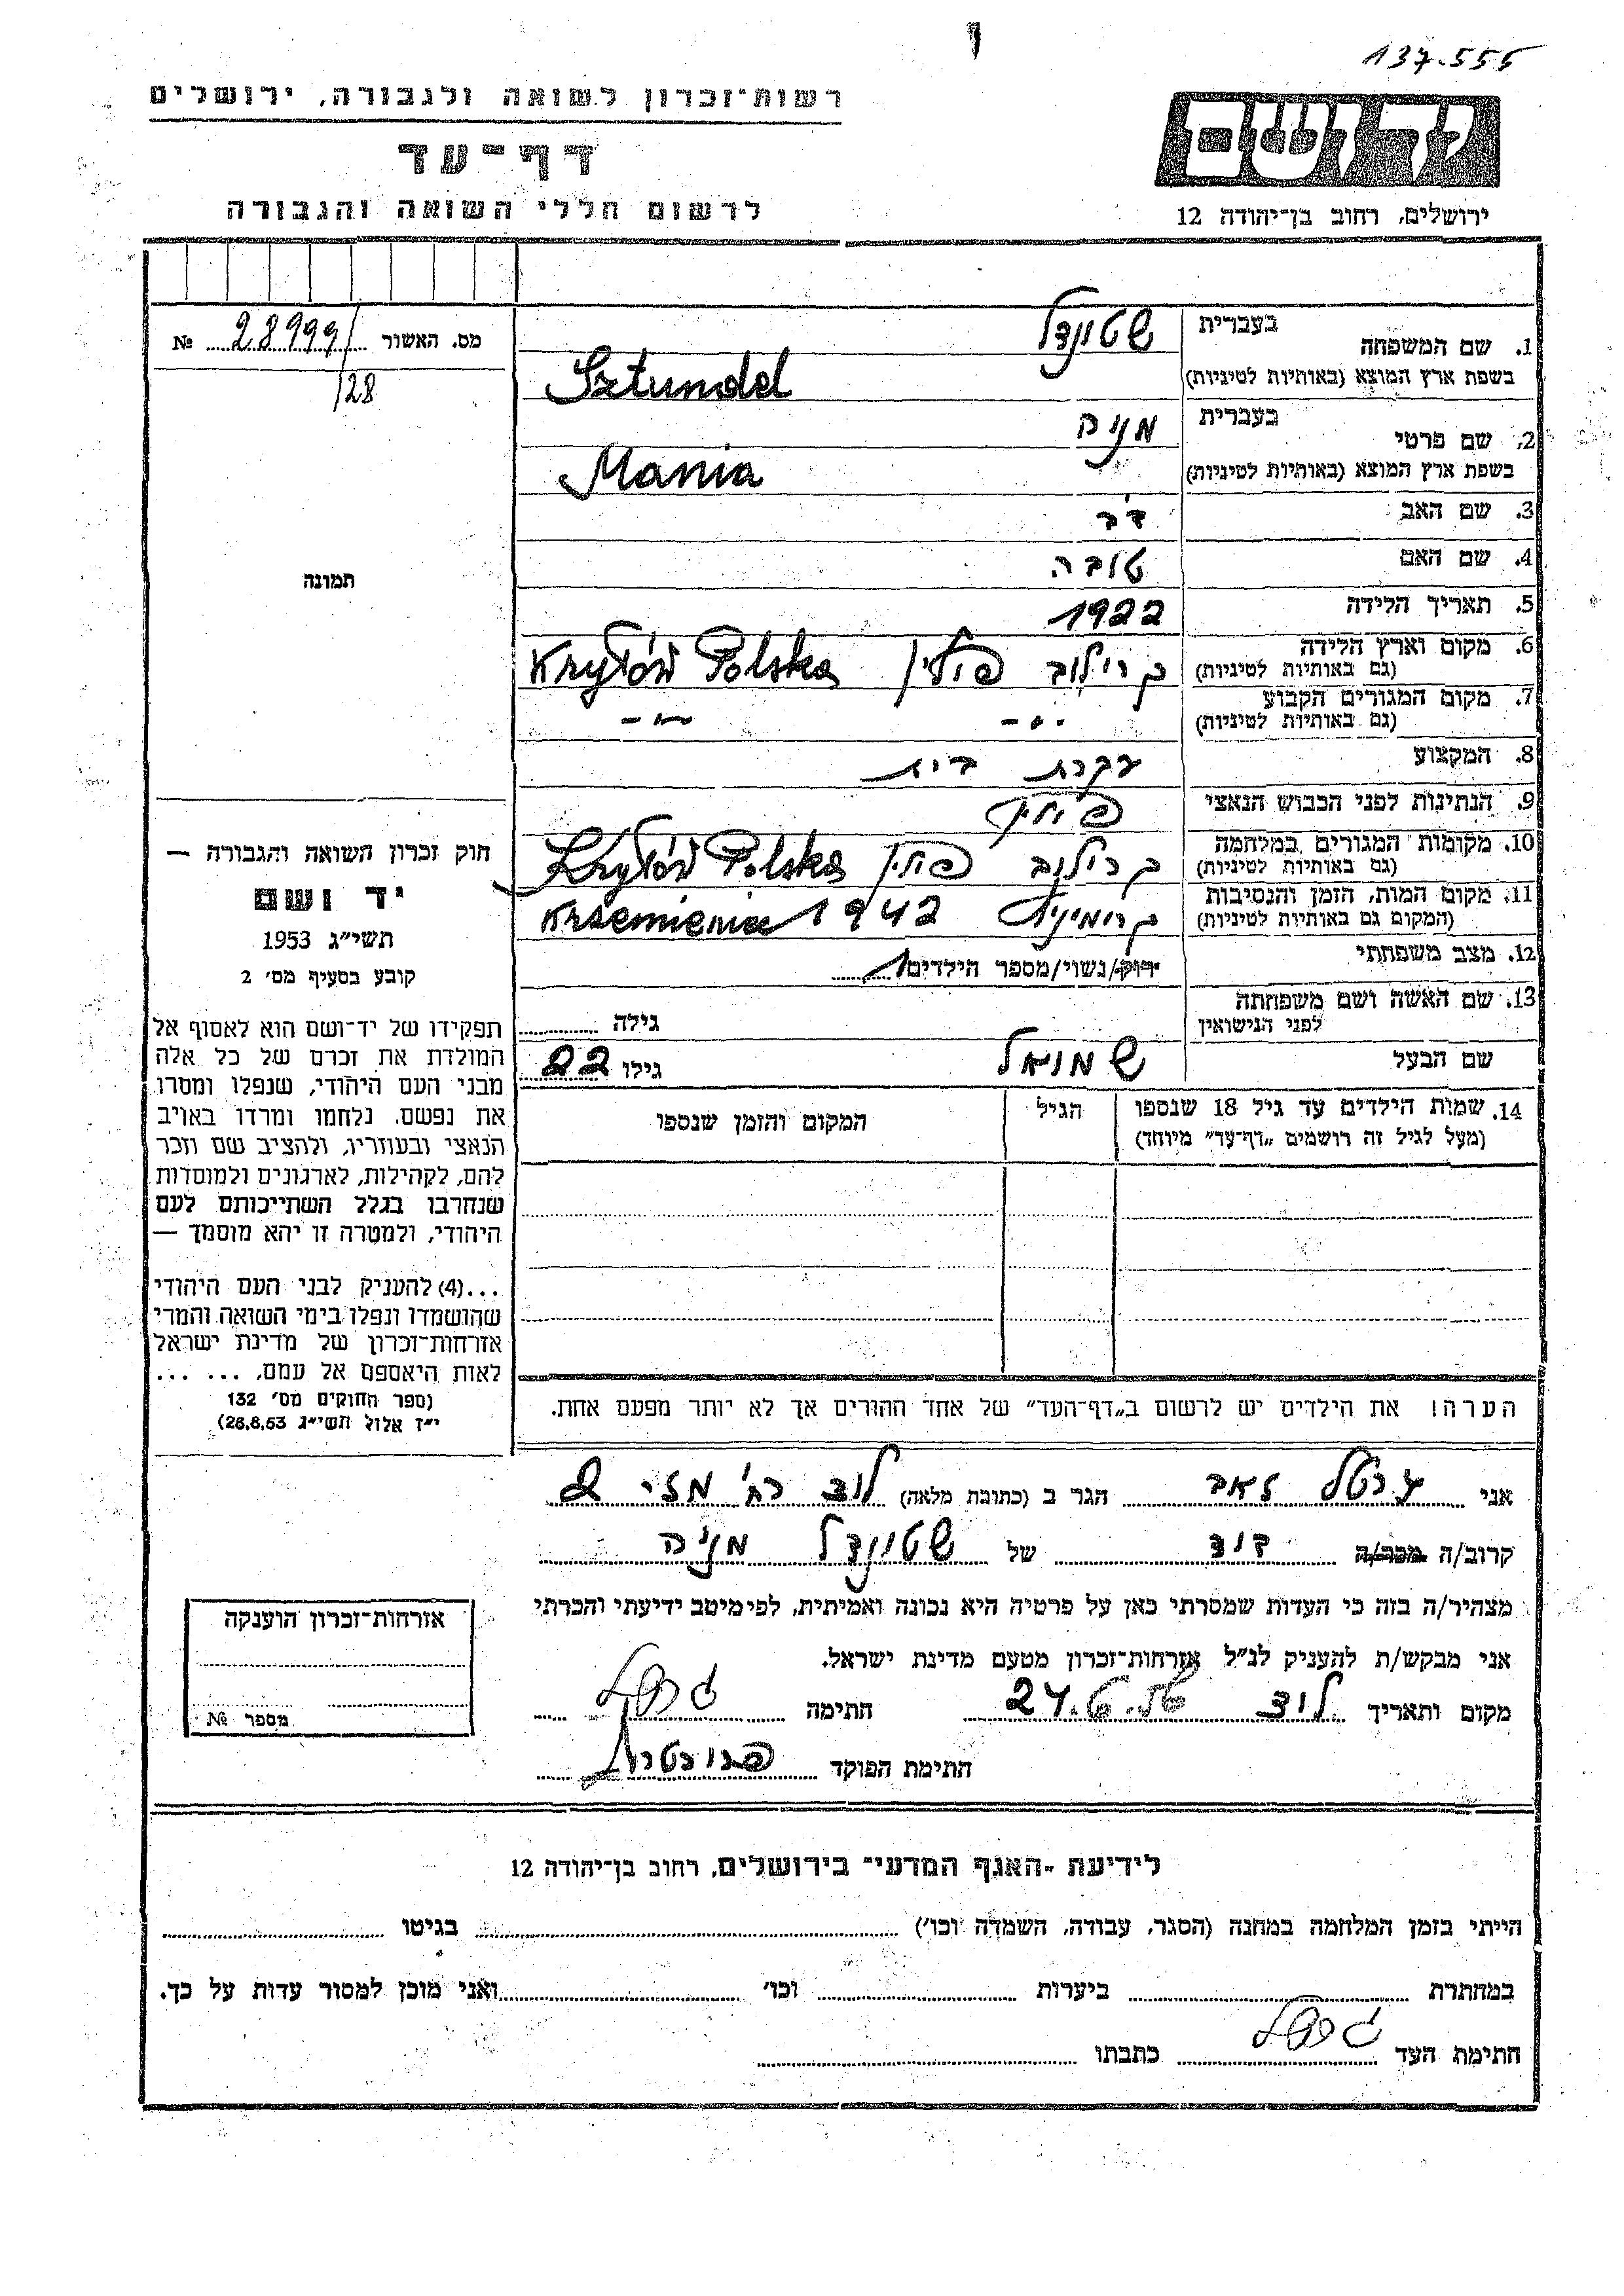 137.555
רשות־זכרון לשואה ולגבורה, ירושלים
דף־עד
לרשום חללי השואה והגבורה
יד ושם
ירושלים, רחוב בן־יהודה 12
מס. האשור 28999 №
/28
תמונה
1. שם המשפחה בעברית שטונדל
בשפת ארץ המוצא (באותיות לטיניות) Sztundel
2. שם פרטי בעברית מניה
בשפת ארץ המוצא (באותיות לטיניות) Mania
3. שם האב דב
4. שם האם טובה
5. תאריך הלידה 1922
6. מקום וארץ הלידה (גם באותיות לטיניות) קרילוב פולין Kryłów Polska
7. מקום המגורים הקבוע (גם באותיות לטיניות) -"- -"-
8. המקצוע עקרת בית
9. הנתינות לפני הכבוש הנאצי פולין
10. מקומות המגורים במלחמה (גם באותיות לטיניות) קרילוב פולין Kryłów Polska
11. מקום המות, הזמן והנסיבות (המקום גם באותיות לטיניות) 1942
12. מצב משפחתי רווק/נשוי/מספר הילדים 1
13. שם האשה ושם משפחתה לפני הנישואין גילה
שם הבעל שמואל גילו 22
14. שמות הילדים עד גיל 18 שנספו הגיל המקום והזמן שנספו
(מעל לגיל זה רושמים „דף־עד" מיוחד)
חוק זכרון השואה והגבורה —
יד ושם
תשי״ג 1953
קובע בסעיף מס׳ 2
תפקידו של יד־ושם הוא לאסוף אל
המולדת את זכרם של כל אלה
מבני העם היהודי, שנפלו ומסרו
את נפשם, נלחמו ומרדו באויב
הנאצי ובעוזריו, ולהציב שם וזכר
להם, לקהילות, לארגונים ולמוסדות
שנחרבו בגלל השתייכותם לעם
היהודי, ולמטרה זו יהא מוסמך —
...(4) להעניק לבני העם היהודי
שהושמדו ונפלו בימי השואה והמרי
אזרחות־זכרון של מדינת ישראל
לאות היאספם אל עמם, ... ...
(ספר החוקים מס׳ 132
י״ז אלול תשי״ג 28.8.53)
הערה! את הילדים יש לרשום ב„דף־העד" של אחד ההורים אך לא יותר מפעם אחת.
אני זאב הגר ב (כתובת מלאה) לוד רח' 2
קרוב/ה מכר/ה דוד של שטונדל מניה
מצהיר/ה בזה כי העדות שמסרתי כאן על פרטיה היא נכונה ואמיתית, לפי מיטב ידיעתי והכרתי
אני מבקש/ת להעניק לנ״ל אזרחות־זכרון מטעם מדינת ישראל.
מקום ותאריך לוד 24.6.56 חתימה
חתימת הפוקד
אזרחות־זכרון הוענקה
מספר №
לידיעת „האגף המדעי" בירושלים, רחוב בן־יהודה 12
הייתי בזמן המלחמה במחנה (הסגר, עבודה, השמדה וכו׳) בגיטו
במחתרת ביערות וכו׳ ואני מוכן למסור עדות על כך.
חתימת העד כתבתו